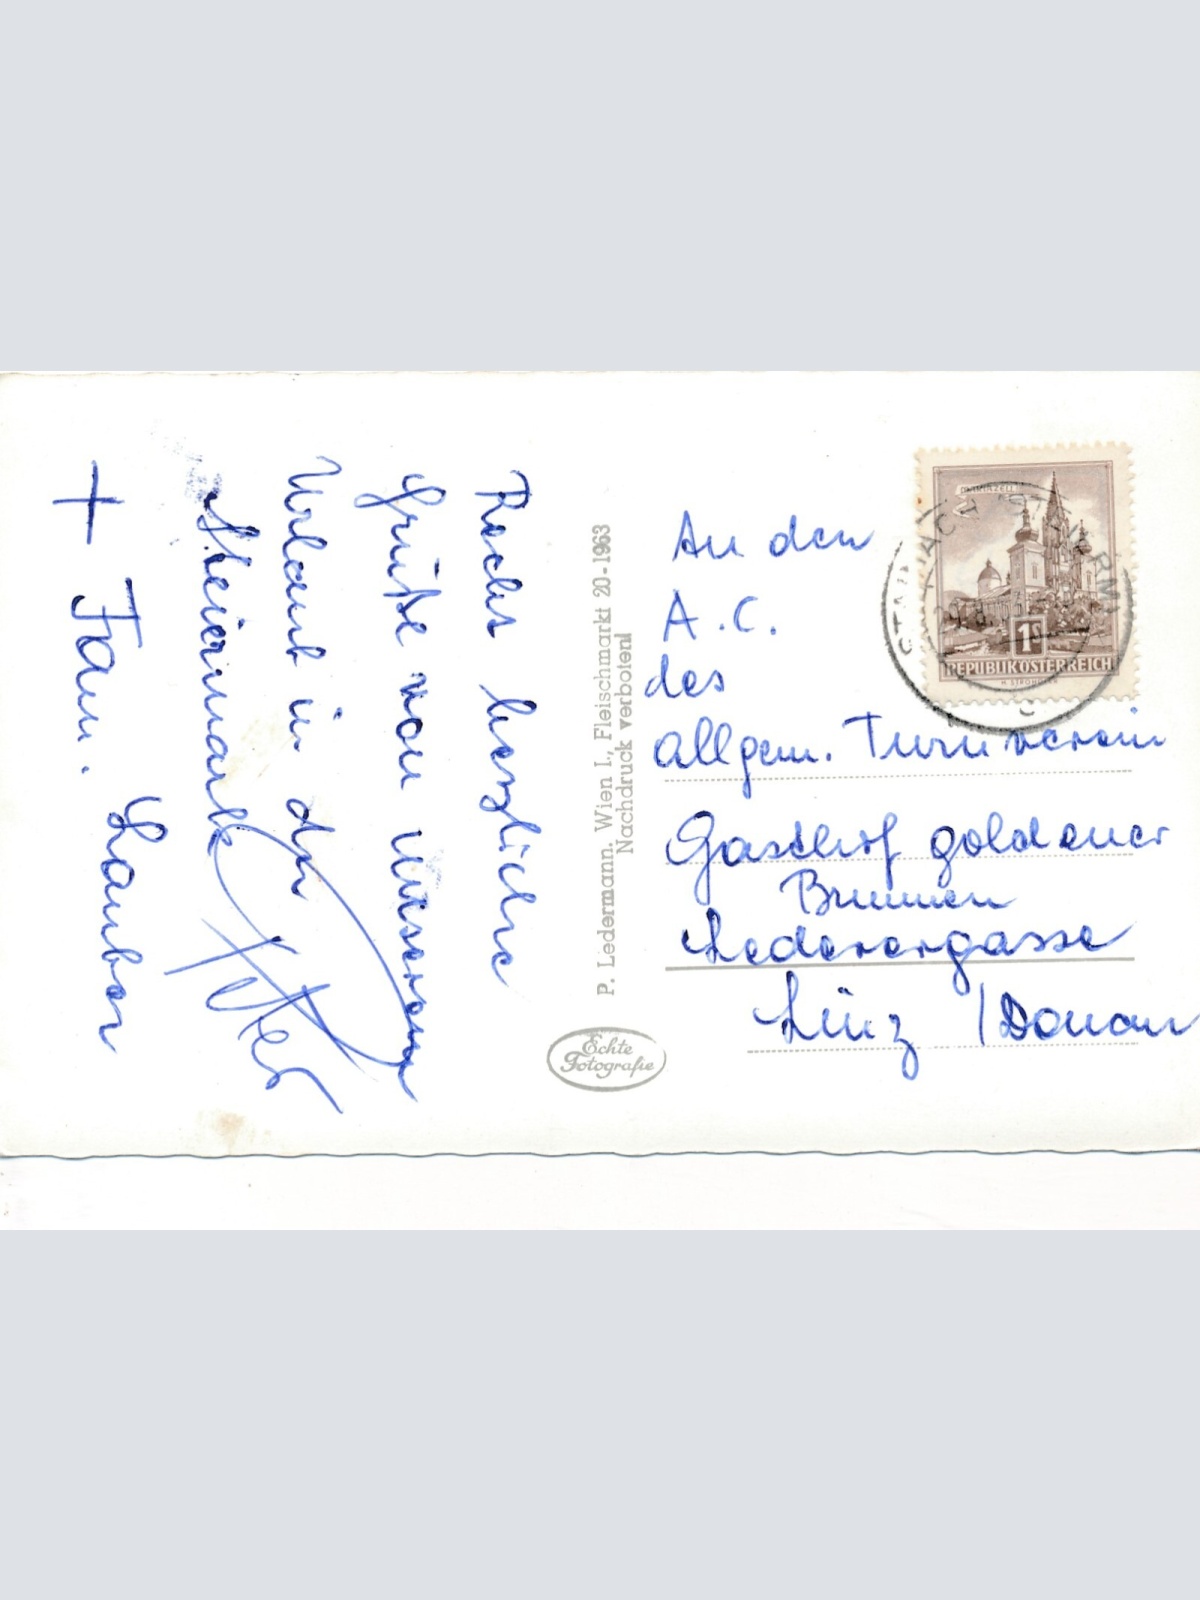 Recht herzliche
Grüße von unserem
Urlaub in der
Steiermark
+ Fam.
P. Ledermann, Wien I., Fleischmarkt 20 - 1963
Nachdruck verboten!
Echte
Fotografie
An den
A.C.
des
allgem. Turnverein
Gasthof goldener
Brunnen
Lederergasse
Linz / Donau
MARIAZELL
1S
REPUBLIK ÖSTERREICH
STAINACH